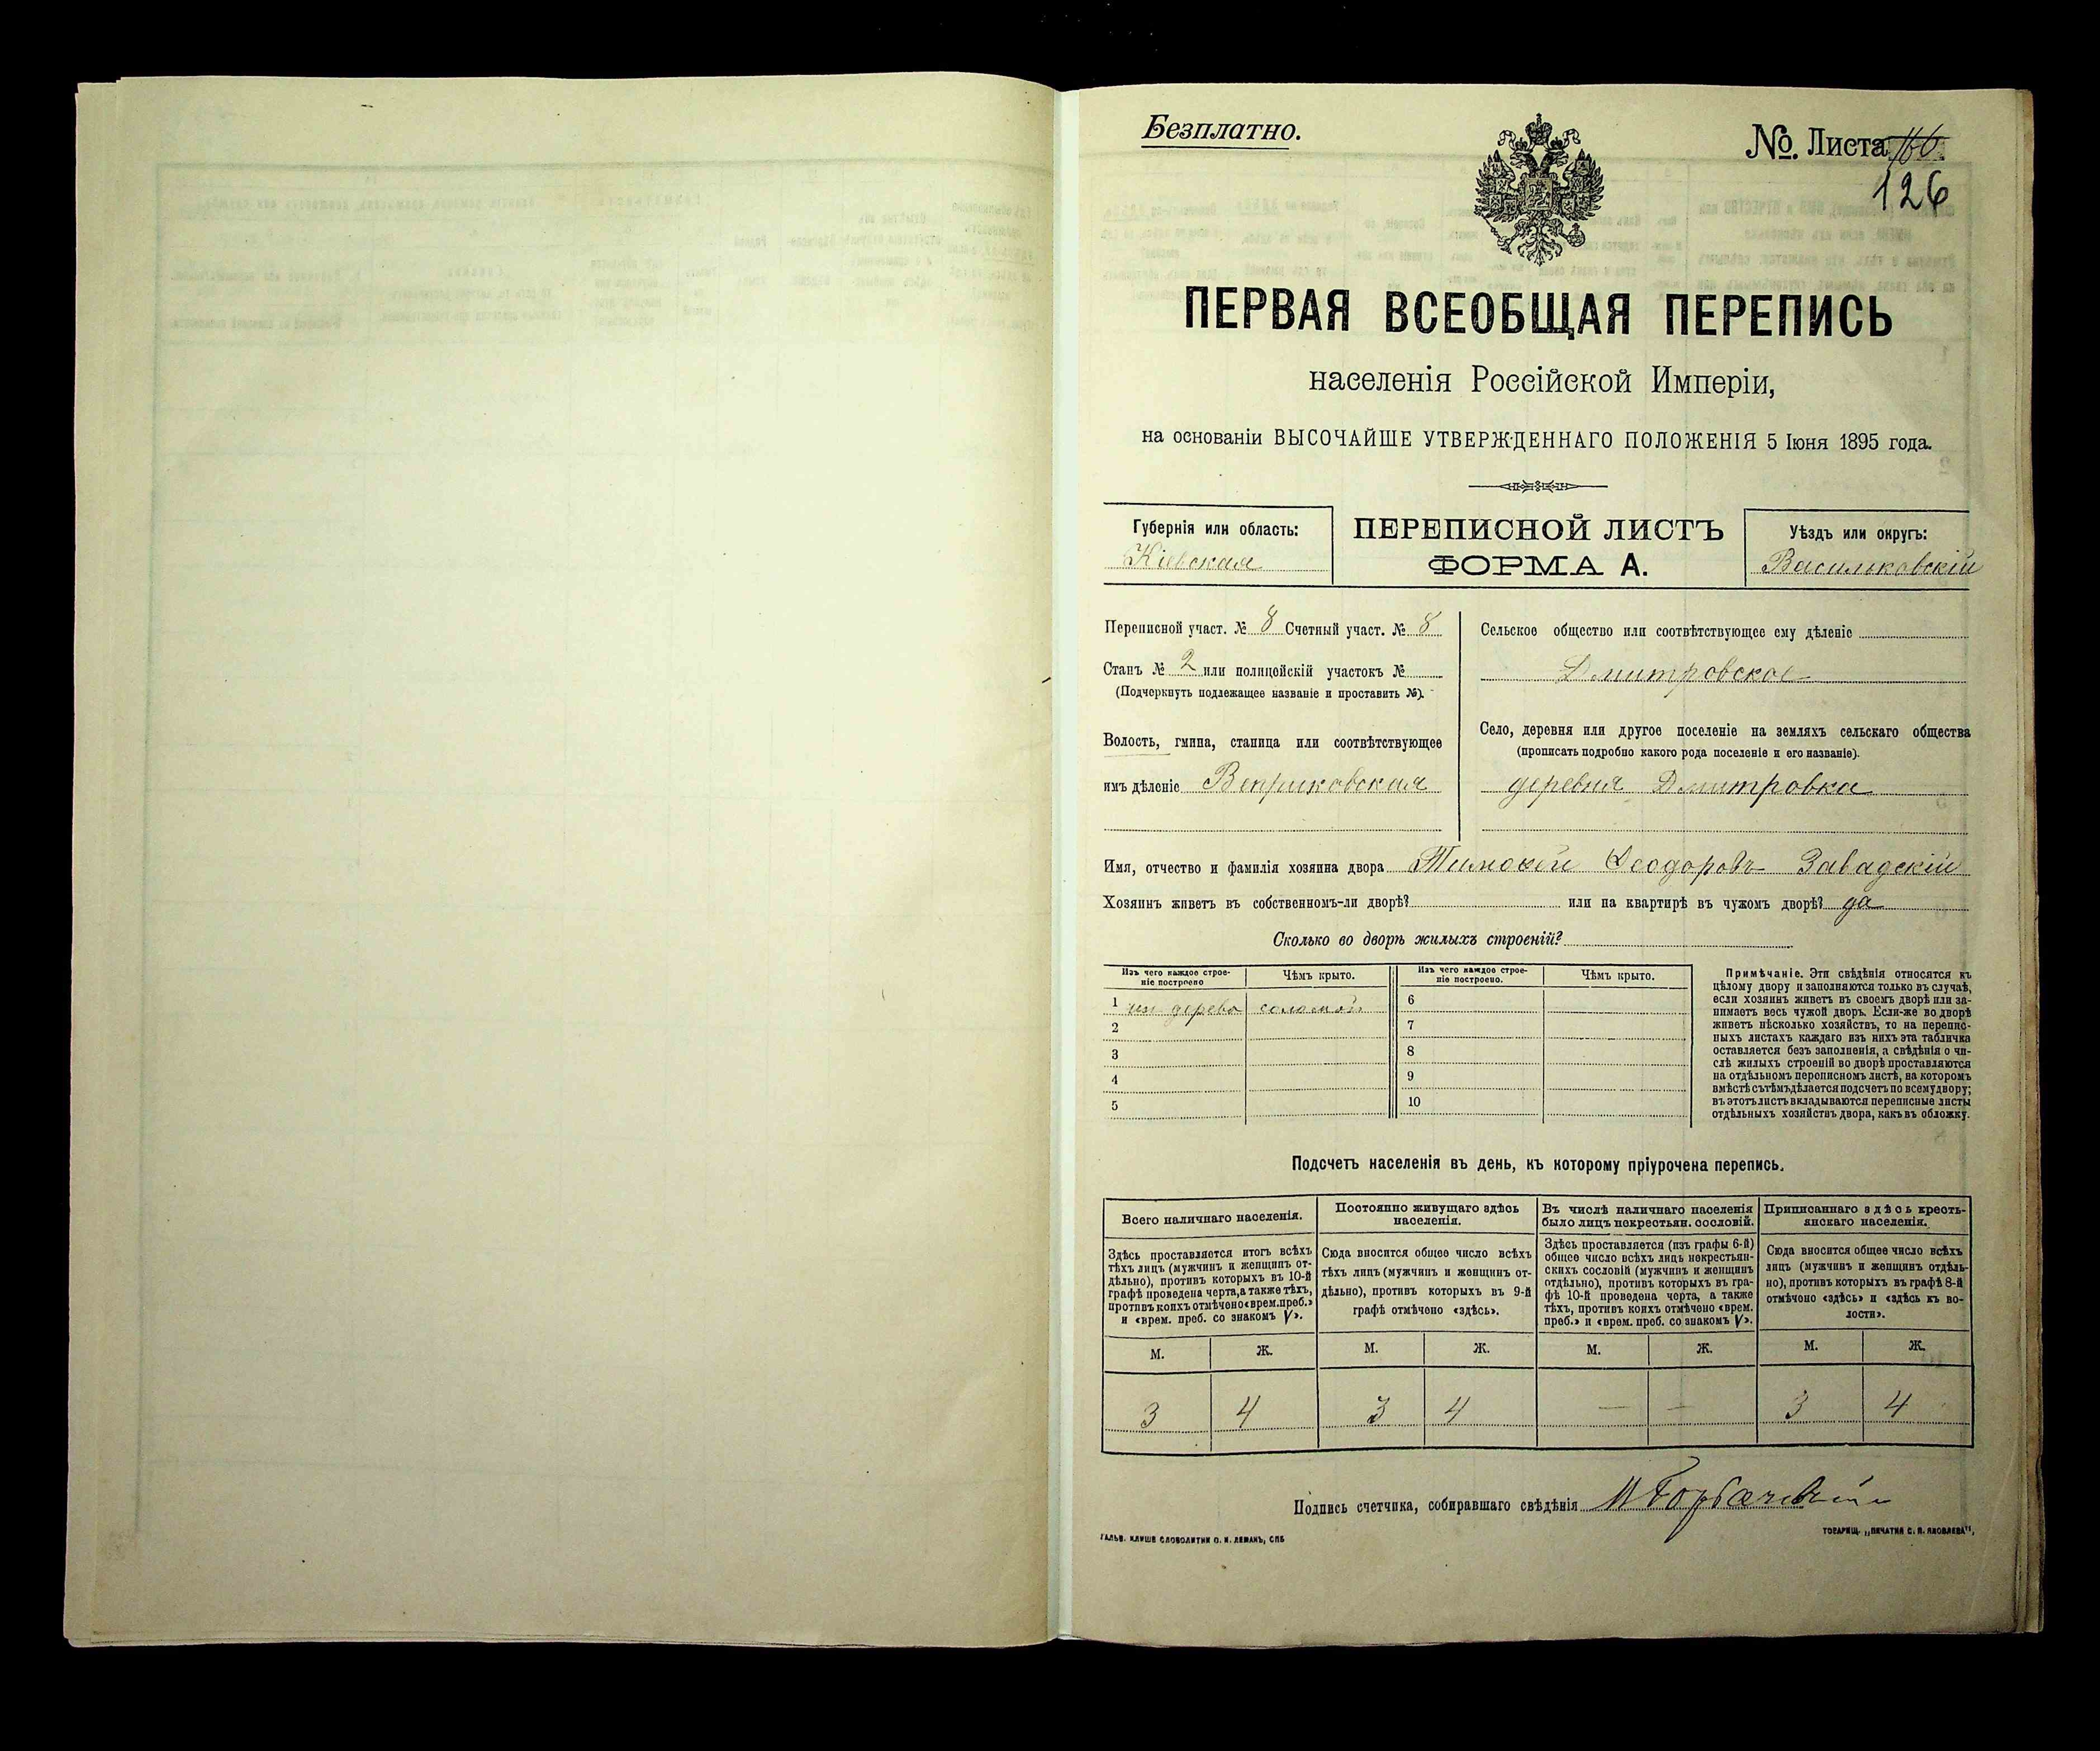 Безплатно.
№. Листа 160.
126
ПЕРВАЯ ВСЕОБЩАЯ ПЕРЕПИСЬ
населенія Россійской Имперіи,
на основаніи ВЫСОЧАЙШЕ УТВЕРЖДЕННАГО ПОЛОЖЕНІЯ 5 Іюня 1895 года.
Губернія или область:
Кіевская
ПЕРЕПИСНОЙ ЛИСТЪ
ФОРМА А.
Уѣздъ или округъ:
Васильковскій
Переписной участ. № 8 Счетный участ. № 8
Станъ № 2 или полицейскій участокъ №
(Подчеркнуть подлежащее названіе и проставить №).
Волость, гмина, станица или соотвѣтствующее
имъ дѣленіе Веприковская
Сельское общество или соотвѣтствующее ему дѣленіе
Дмитровское
Село, деревня или другое поселеніе на земляхъ сельскаго общества
(прописать подробно какого рода поселеніе и его названіе).
деревня Дмитровка
Имя, отчество и фамилія хозяина двора Тимофей Феодоровъ Завадскій
Хозяинъ живетъ въ собственномъ-ли дворѣ? или на квартирѣ въ чужомъ дворѣ? да
Сколько во дворѣ жилыхъ строеній?
Изъ чего каждое строе-
ніе построено
Чѣмъ крыто.
Изъ чего каждое строе-
ніе построено.
Чѣмъ крыто.
1 из дерева соломой
2
3
4
5
6
7
8
9
10
Примѣчаніе. Эти свѣдѣнія относятся къ
цѣлому двору и заполняются только въ случаѣ,
если хозяинъ живетъ въ своемъ дворѣ или за-
нимаетъ весь чужой дворъ. Если-же во дворѣ
живетъ нѣсколько хозяйствъ, то на перепис-
ныхъ листахъ каждаго изъ нихъ эта табличка
оставляется безъ заполненія, а свѣдѣнія о чи-
слѣ жилыхъ строеній во дворѣ проставляются
на отдѣльномъ переписномъ листѣ, на которомъ
вмѣстѣ съ тѣмъ дѣлается подсчетъ по всему двору;
въ этотъ листъ вкладываются переписные листы
отдѣльныхъ хозяйствъ двора, какъ въ обложку.
Подсчетъ населенія въ день, къ которому пріурочена перепись.
Всего наличнаго населенія.
Здѣсь проставляется итогъ всѣхъ
тѣхъ лицъ (мужчинъ и женщинъ от-
дѣльно), противъ которыхъ въ 10-й
графѣ проведена черта, а также тѣхъ,
противъ коихъ отмѣчено «врем. преб.»
и «врем. преб. со знакомъ V».
Постоянно живущаго здѣсь
населенія.
Сюда вносится общее число всѣхъ
тѣхъ лицъ (мужчинъ и женщинъ от-
дѣльно), противъ которыхъ въ 9-й
графѣ отмѣчено «здѣсь».
Въ числѣ наличнаго населенія
было лицъ некрестьян. сословій.
Здѣсь проставляется (изъ графы 6-й)
общее число всѣхъ лицъ некрестьян-
скихъ сословій (мужчинъ и женщинъ
отдѣльно), противъ которыхъ въ гра-
фѣ 10-й проведена черта, а также
тѣхъ, противъ коихъ отмѣчено «врем.
преб.» и «врем. преб. со знакомъ V».
Приписаннаго здѣсь кресть-
янскаго населенія.
Сюда вносится общее число всѣхъ
лицъ (мужчинъ и женщинъ отдѣль-
но), противъ которыхъ въ графѣ 8-й
отмѣчено «здѣсь» и «здѣсь къ во-
лости».
М. Ж. М. Ж. М. Ж. М. Ж.
3 4 3 4 — — 3 4
Подпись счетчика, собиравшаго свѣдѣнія
ГАЛЬВ. КЛИШЕ СЛОВОЛИТНИ О. И. ЛЕМАНЪ, СПБ
ТОВАРИЩ. „ПЕЧАТНЯ С. П. ЯКОВЛЕВА",